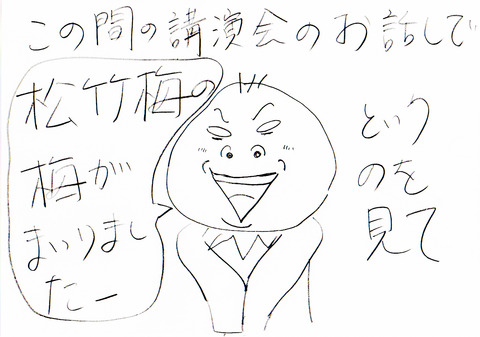 この間の講演会のお話しで
松竹梅の
梅が
まいりまし
たー
という
のを
見て